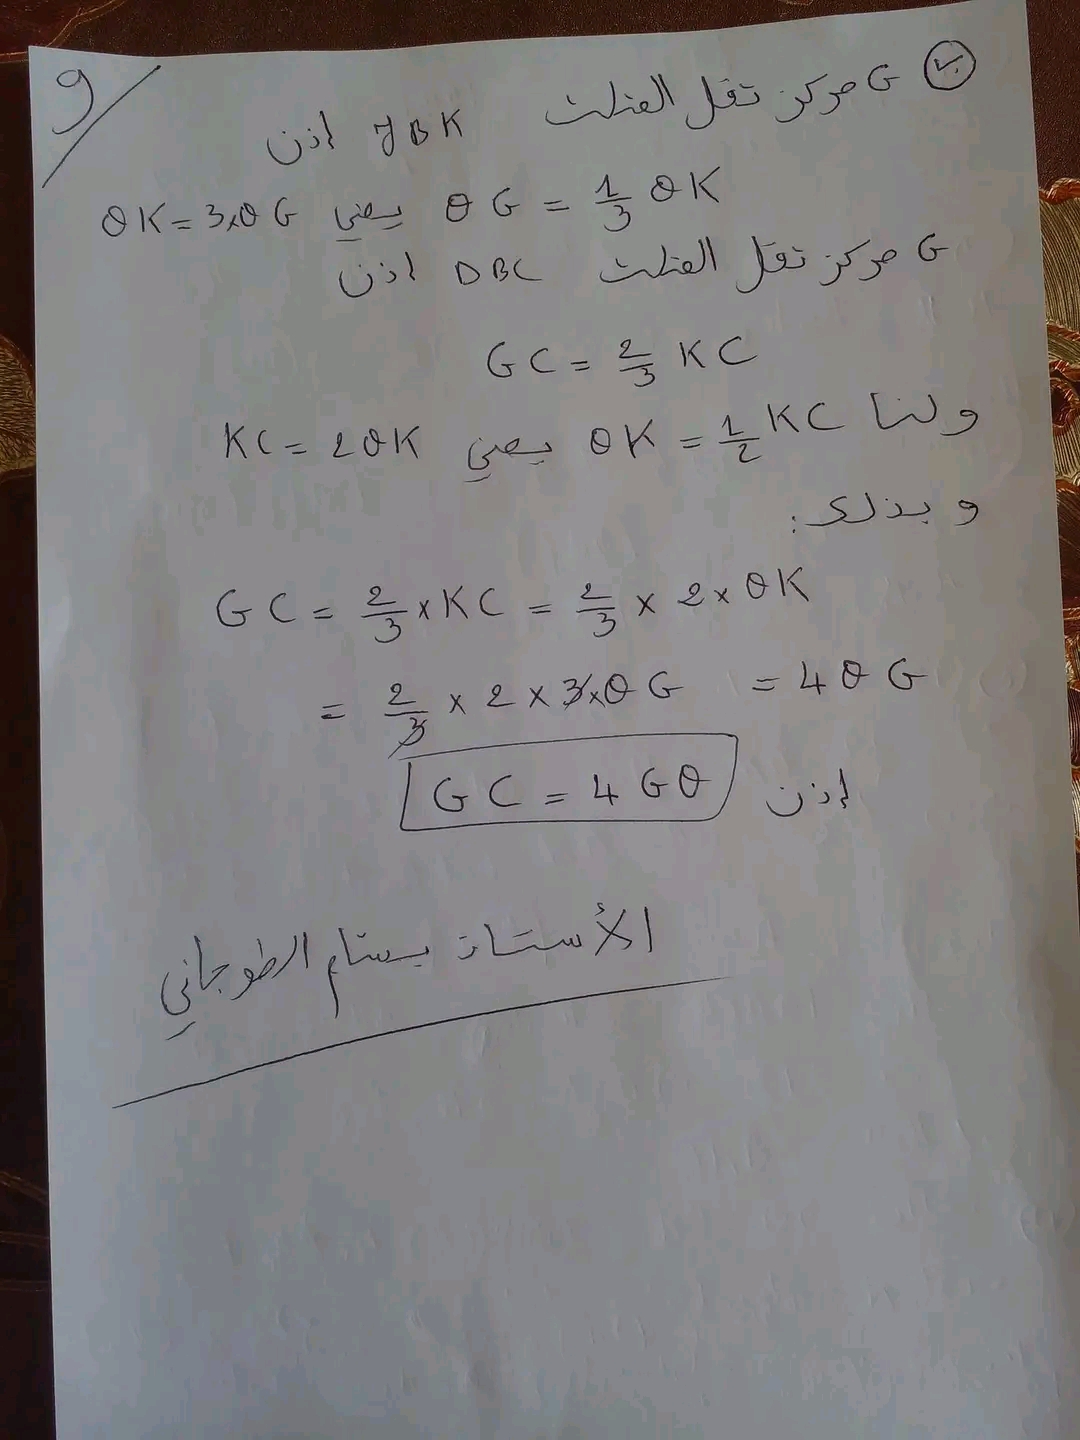 9
ب G مركز ثقل المثلث JBK إذن
OG = 1/3 OK يعني OK = 3×OG
G مركز ثقل المثلث DBC إذن
GC = 2/3 KC
ولنا OK = 1/2 KC يعني KC = 2OK
وبذلك:
GC = 2/3 × KC = 2/3 × 2 × OK
= 2/3 × 2 × 3×OG = 4OG
إذن GC = 4GO
الأستاذ بسام الطوجاني